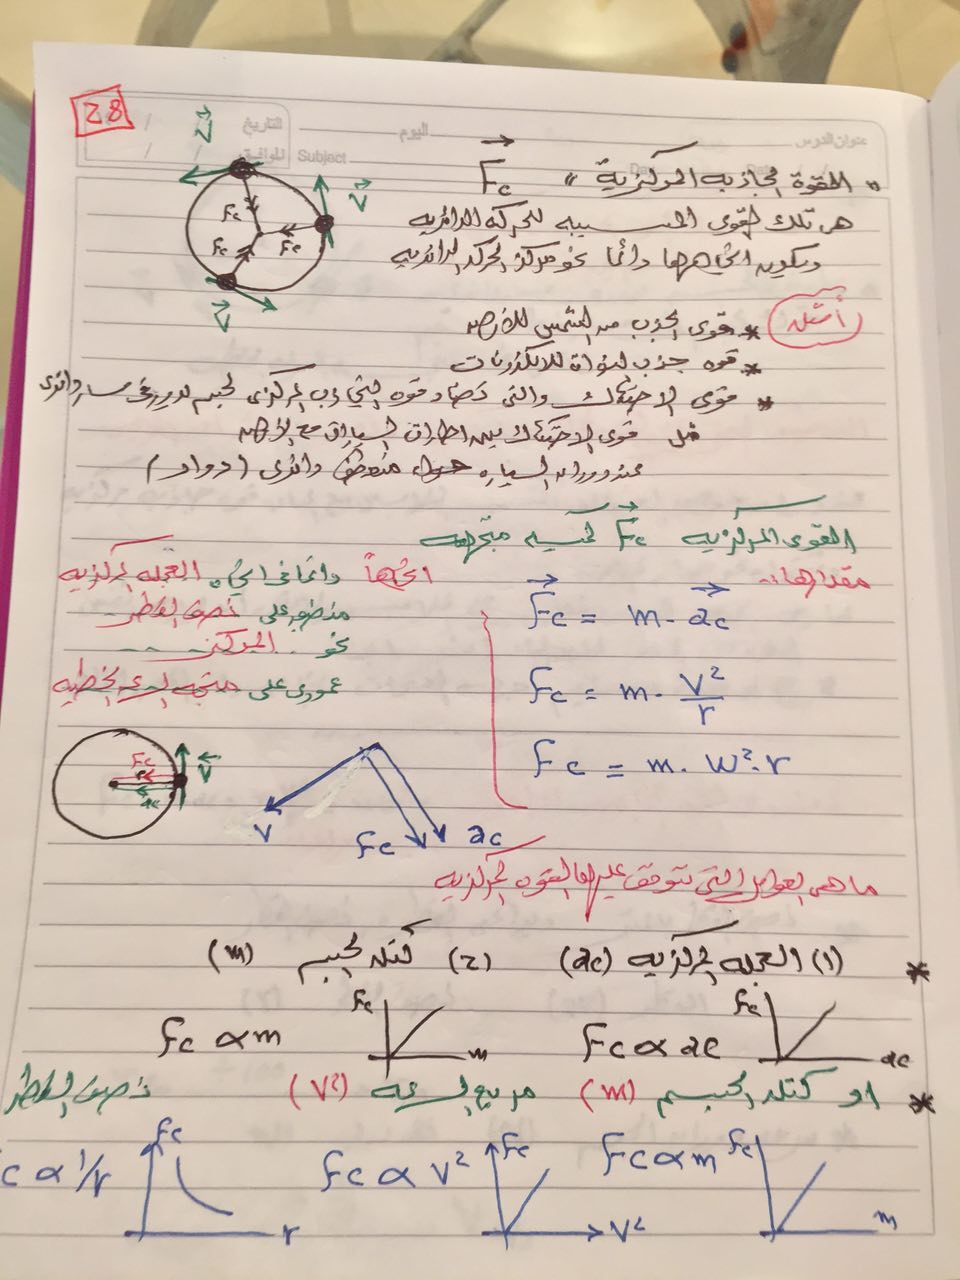 28
عنوان الدرس اليوم التاريخ
Subject الموافق
" القوة الجاذبة المركزية " Fc
V V V
Fc Fc Fc
هي تلك القوى المسببه للحركه الدائريه
ويكون اتجاهها دائما نحو مركز الحركه الدائريه
أمثله
* قوى الجذب من الشمس للأرض
* قوه جذب النواة للالكترونات
* قوى الاحتكاك والتي تضاد قوه الجذب المركزى لجسم يدور في مسار دائرى
مثل قوى الاحتكاك بين اطارات السيارة مع الأرض
عند دوران السياره حول منعطف دائرى (دوار)
القوى المركزيه Fc كميه متجهه
مقدارها:
Fc = m . ac
Fc = m . V²/r
Fc = m . w² . r
اتجاهاً دائما في اتجاه العجله المركزيه
منطبق على نصف القطر
نحو المركز
عمودى على متجه السرعه الخطيه
Fc r ac V
V Fc ac
ما هي العوامل التي تتوقف عليها القوه المركزيه
* (1) العجله المركزيه (ac) (2) كتله الجسم (m)
Fc ∝ ac Fc ac Fc ∝ m Fc m
* او كتله الجسم (m) مربع السرعه (V²) نصف القطر
Fc ∝ m Fc m Fc ∝ V² Fc V² c ∝ 1/r Fc r